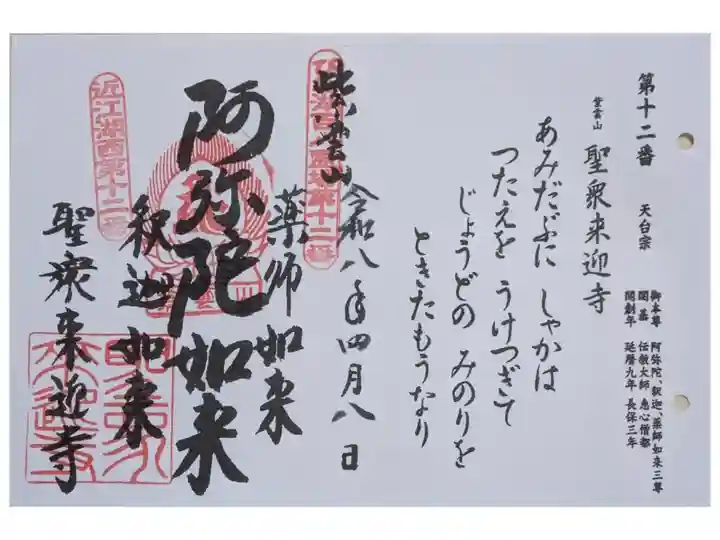 第十二番　天台宗
紫雲山　聖衆来迎寺
御本尊　阿弥陀、釈迦、薬師如来三尊
開基　伝教大師　恵心僧都
開創年　延暦九年　長保三年
あみだぶに　しゃかは
つたえを　うけつぎて
じょうどの　みのりを
ときたもうなり
紫雲山
令和八年四月八日
薬師如来
阿弥陀如来
釈迦如来
聖衆来迎寺
近江湖西第十二番